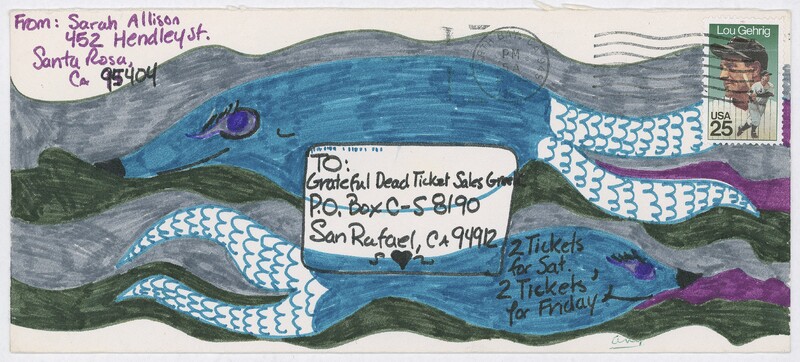 From: Sarah Allison
452 Hendley St.
Santa Rosa,
CA 95404
PM
Lou Gehrig
USA
25
TO:
Grateful Dead Ticket Sales
P.O. Box C-S 8190
San Rafael, CA 94912
2 Tickets
for Sat.,
2 Tickets
for Friday